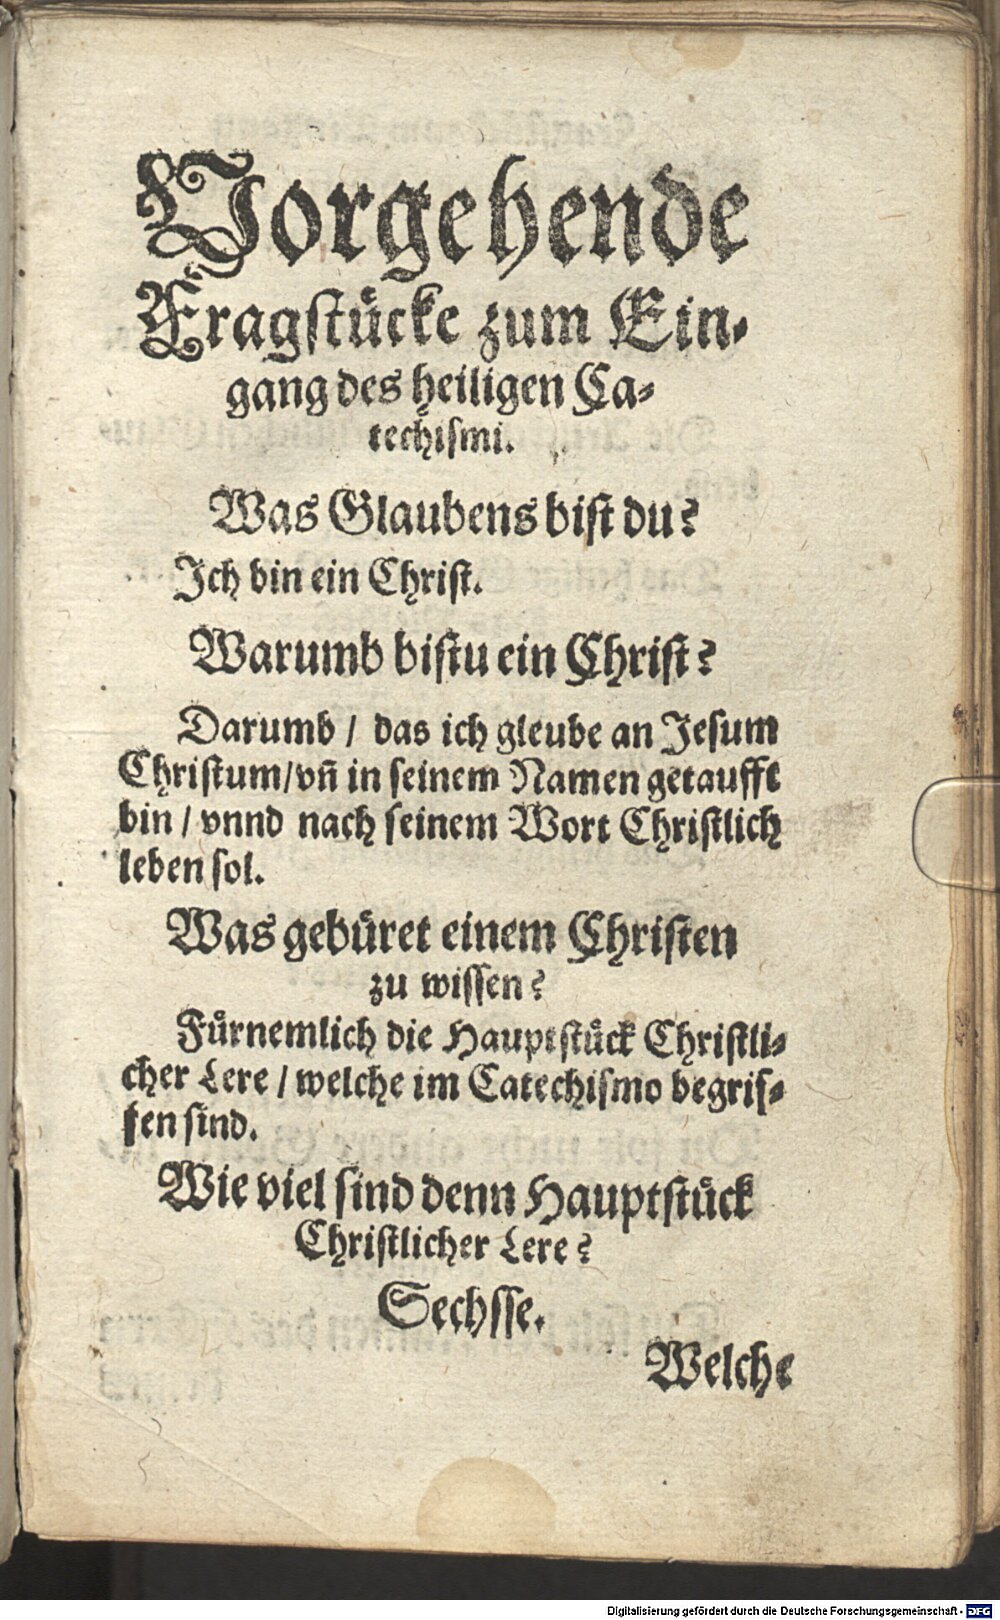 Vorgehende
Fragstücke zum Ein-
gang des heiligen Ca-
techismi.
Was Glaubens bist du?
Ich bin ein Christ.
Warumb bistu ein Christ?
Darumb / das ich gleube an Jesum
Christum/vñ in seinem Namen getaufft
bin / vnnd nach seinem Wort Christlich
leben sol.
Was gebüret einem Christen
zu wissen?
Fürnemlich die Hauptstück Christli-
cher Lere / welche im Catechismo begrif-
fen sind.
Wie viel sind denn Hauptstück
Christlicher Lere?
Sechsse.
Welche
Digitalisierung gefördert durch die Deutsche Forschungsgemeinschaft - DFG